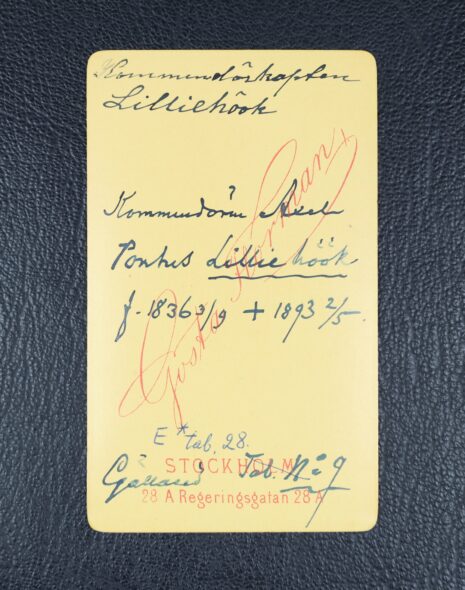 Kommendörkapten
Lilliehöök
Gösta Florman
Kommendören Axel
Pontus Lilliehöök
f. 1836 3/9 + 1893 2/5.
E* tab. 28.
STOCKHOLM
Tab. No 9
28 A Regeringsgatan 28 A